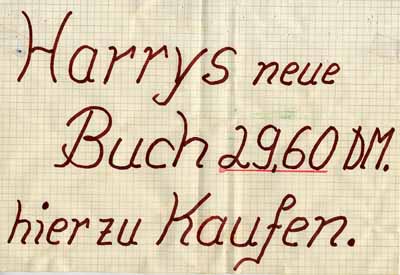 Harrys neue
Buch 29,60 DM.
hier zu Kaufen.